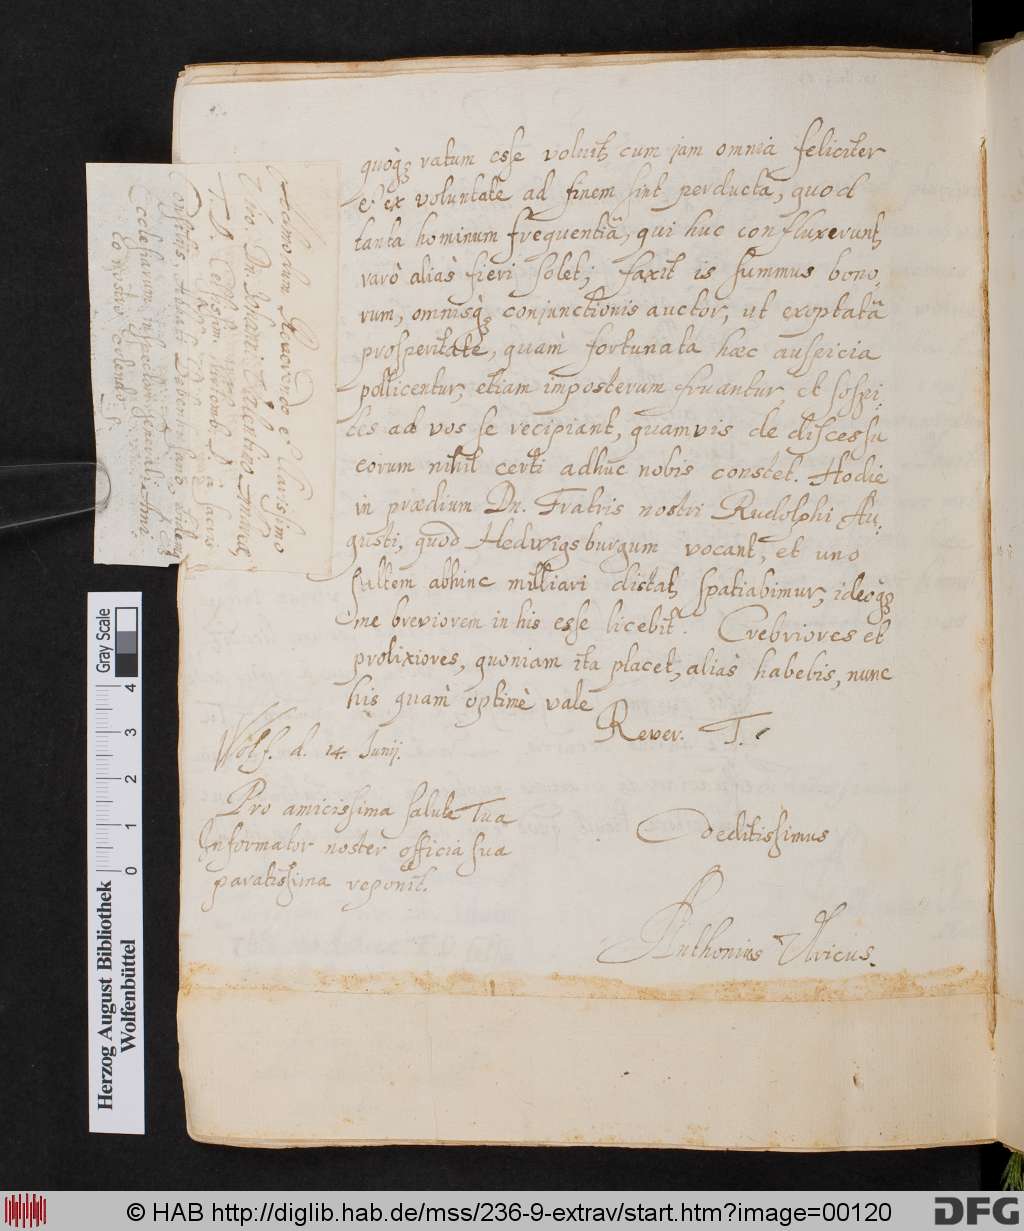 quòq; ratum esse voluit, cum jam omnia feliciter
et ex voluntate ad finem sint perducta, quod
tanta hominum frequentiâ, qui huc confluxerunt,
rarò aliàs fieri solet; faxit is summus bono-
rum, omnisq; conjunctionis auctor, ut exoptatâ
prosperitate, quàm fortunata hæc auspicia
pollicentur, etiam imposterum fruantur, et sospi-
tes ad vos se recipiant, quamvis de discessu
eorum nihil certi adhuc nobis constet. Hodie
in prædium Dn. Fratris nostri Rudolphi Au-
gusti, quod Hedwigsburgum vocant, et uno
saltem abhinc milliari distat, spatiabimur, ideoq;
me breviorem in his esse licebit. Crebriores et
prolixiores, quoniam ita placet, aliàs habebis, nunc
his quàm optimè vale
Rever. T.
Wolf. d. 14. Junij.
Pro amicissima salute Tua
Informator noster officia sua
paratissima reponit.
Deditissimus
Anthonius Ulricus.
Reverendo et Clarissimo
Viro, Dn. Johanni Valentino Andreæ,
S. S. Theol. D.
Celsiss. à sacris
Consiliis, Abbati Bebenhusano
Ecclesiarum inspectori generali
colendo
Gray Scale
0 1 2 3 4
Herzog August Bibliothek
Wolfenbüttel
© HAB http://diglib.hab.de/mss/236-9-extrav/start.htm?image=00120
DFG